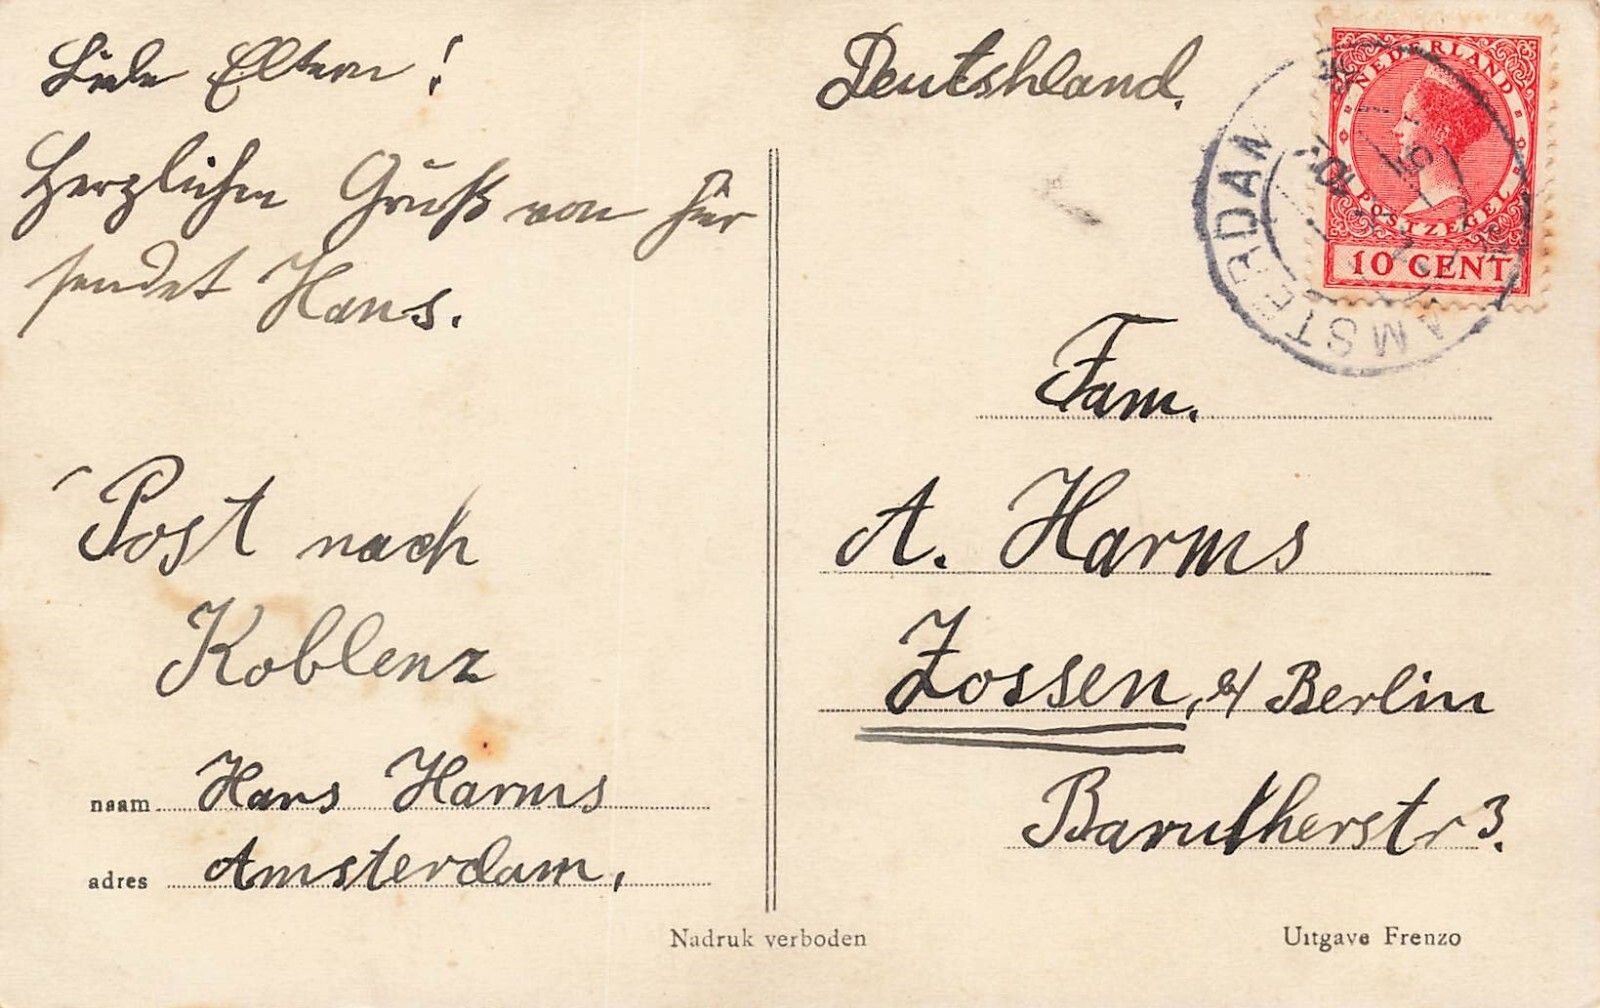 Liebe Eltern!
Herzlichen Gruß von hier
sendet Hans.
Post nach
Koblenz
naam Hans Harms
adres Amsterdam,
Nadruk verboden
Deutshland.
NEDERLAND
POSTZEGEL
10 CENT
AMSTERDAM
Fam.
A. Harms
Zossen, b/ Berlin
Barutherstr 3.
Uitgave Frenzo